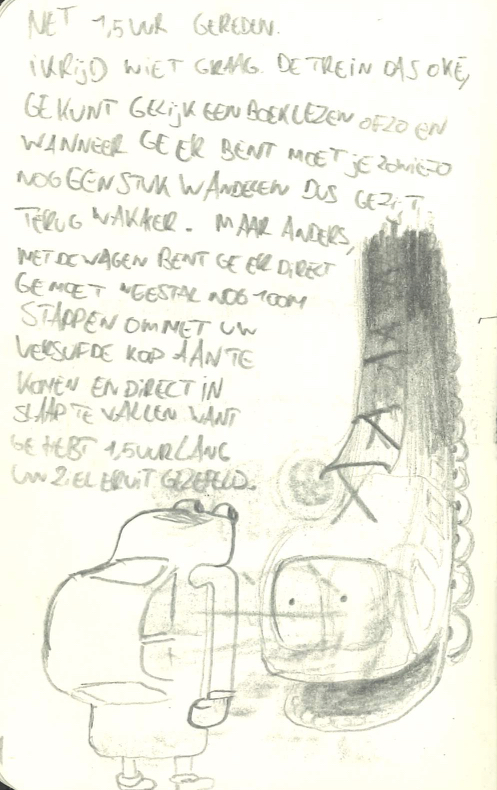 NET 1,5 UUR GEREDEN.
IK RIJD NIET GRAAG. DE TREIN DAS OKÉ,
GE KUNT GELIJK EEN BOEK LEZEN OFZO EN
WANNEER GE ER BENT MOET JE ZOWIEZO
NOG EEN STUK WANDELEN DUS GE ZIJT
TERUG WAKKER. MAAR ANDERS,
MET DE WAGEN BENT GE ER DIRECT
GE MOET MEESTAL NOG 100M
STAPPEN OM MET UW
VERSUFDE KOP AAN TE
KOMEN EN DIRECT IN
SLAAP TE VALLEN WANT
GE HEBT 1,5 UUR LANG
UW ZIEL ERUIT GEREFELD.